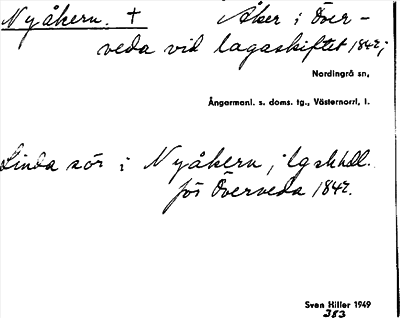 Nyåkern. + Åker i Över-
veda vid lagaskiftet 1842;
Nordingrå sn,
Ångermanl. s. doms. tg., Västernorrl, l.
Linda sör i Nyåkern, lgskhdl.
för Överveda 1842.
Sven Hiller 1949
383